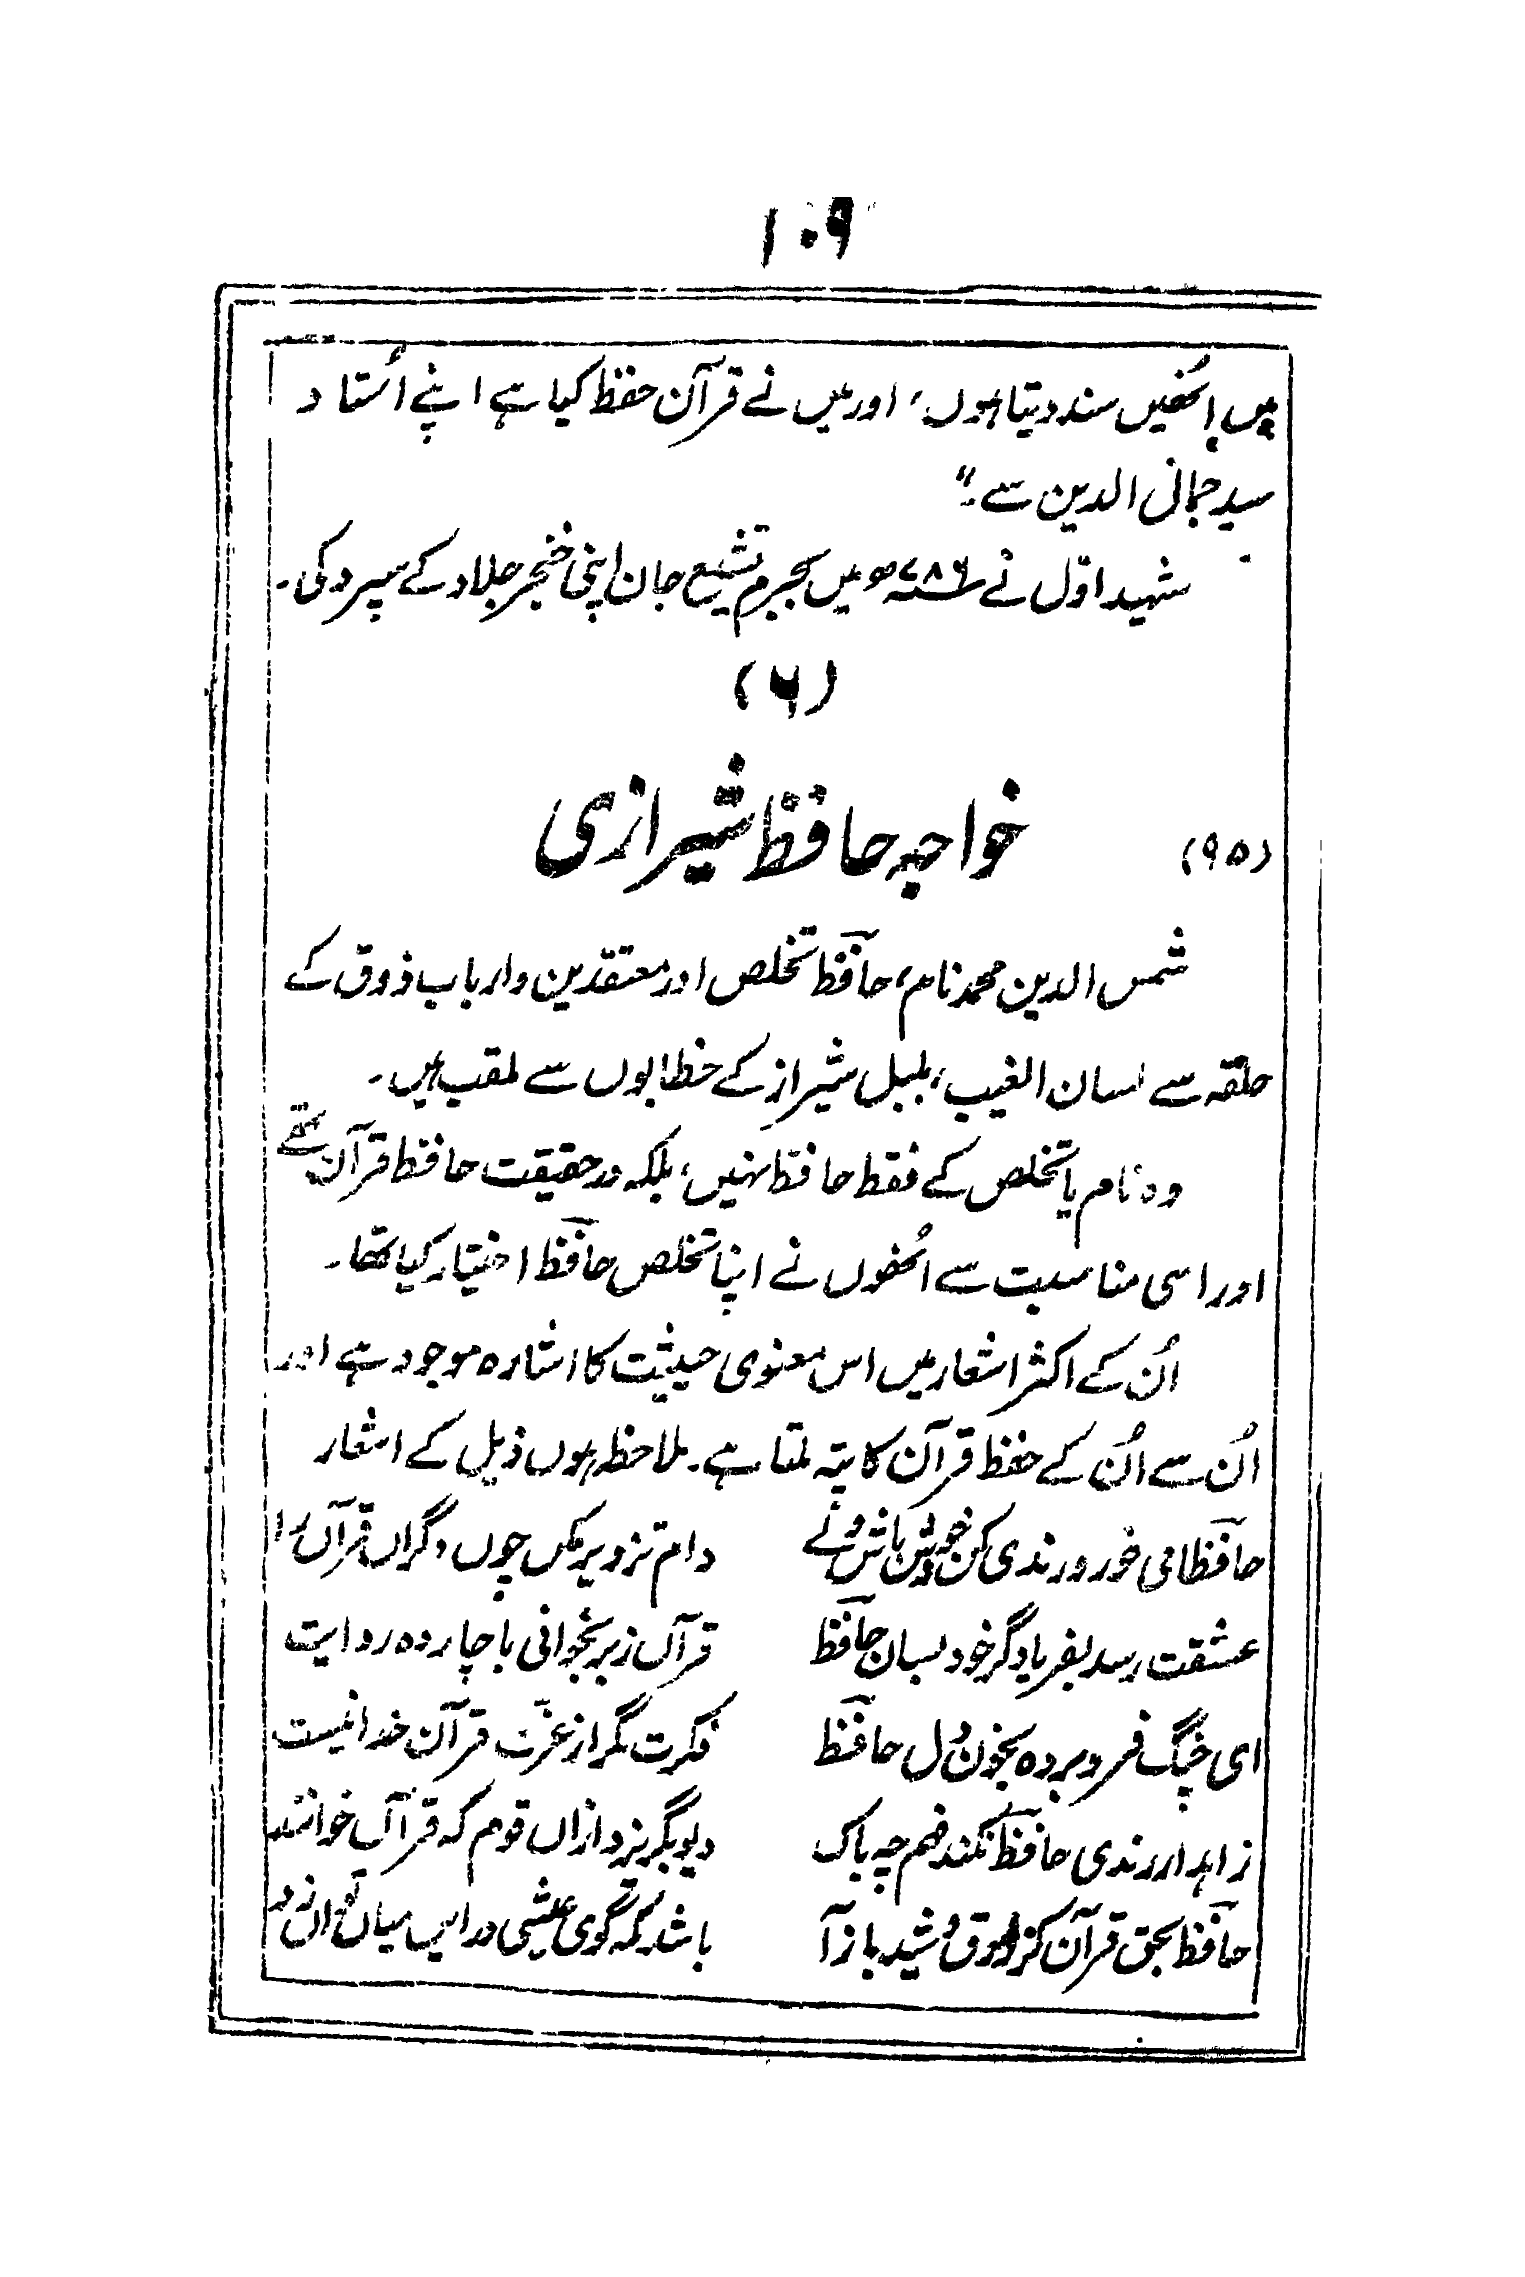 ۱۰۹
میں اِنھیں سند دیتا ہوں، اور میں نے قرآن حفظ کیا ہے اپنے اُستاد
سید جمال الدین سے۔"
شہید اوّل نے ۷۸۶ھ میں بجرم تشیع جان اپنی خنجر جلاد کے سپرد کی۔
(۶)
(۹۵) خواجہ حافظ شیرازی
شمس الدین محمد نام، حافظ تخلص اور معتقدین و ارباب ذوق کے
حلقہ سے لسان الغیب، بلبل شیراز کے خطابوں سے ملقب ہیں۔
وہ نام یا تخلص کے فقط حافظ نہیں، بلکہ درحقیقت حافظ قرآن تھے
اور اسی مناسبت سے اُنھوں نے اپنا تخلص حافظ اختیار کیا تھا۔
اُن کے اکثر اشعار میں اس معنوی حیثیت کا اشارہ موجود ہے اور
اُن سے اُن کے حفظ قرآن کا پتہ ملتا ہے۔ ملاحظہ ہوں ذیل کے اشعار
حافظا می خور و رندی کن و خوش باش ولے دام تزویر مکن چوں دگراں قرآں را
عشقت رسد بفریاد گر خود بسان حافظ قرآں زبر بخوانی با چاردہ روایت
ای چنگ فرو بردہ بخون دل حافظ فکرت مگر از عزت قرآن خدا نیست
زاہد ار رندی حافظ نکند فہم چہ باک دیو بگریزد ازاں قوم کہ قرآں خوانند
حافظ بحق قرآن کز زرق و شید باز آ باشد کہ گوی عیشی در ایں میاں تواں زد